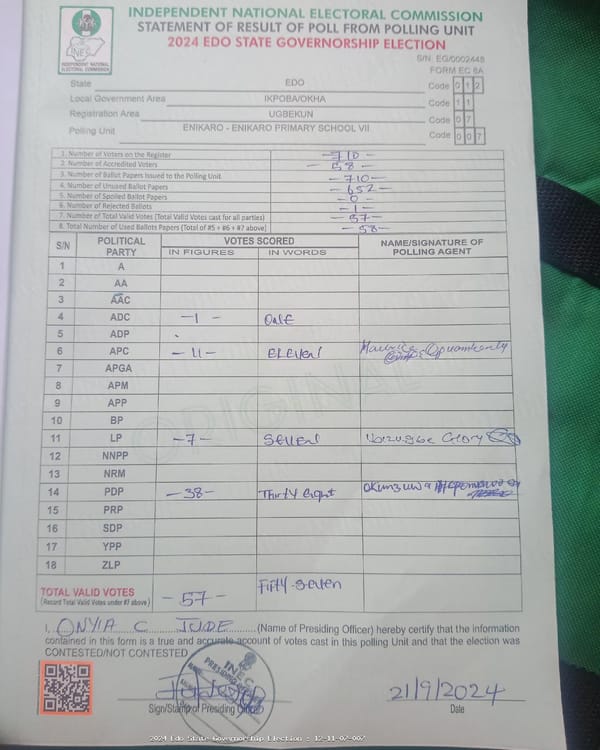 INDEPENDENT NATIONAL ELECTORAL COMMISSION
STATEMENT OF RESULT OF POLL FROM POLLING UNIT
2024 EDO STATE GOVERNORSHIP ELECTION
INEC
INDEPENDENT NATIONAL ELECTORAL COMMISSION
S/N: EG/0002448
FORM EC 8A
State EDO Code 0 1 2
Local Government Area IKPOBA/OKHA Code 1 1
Registration Area UGBEKUN Code 0 7
Polling Unit ENIKARO - ENIKARO PRIMARY SCHOOL VII Code 0 0 7
1. Number of Voters on the Register -710-
2. Number of Accredited Voters - 58 -
3. Number of Ballot Papers Issued to the Polling Unit -710-
4. Number of Unused Ballot Papers -652-
5. Number of Spoiled Ballot Papers -0-
6. Number of Rejected Ballots -1-
7. Number of Total Valid Votes (Total Valid Votes cast for all parties) -57-
8. Total Number of Used Ballots Papers (Total of #5 + #6 + #7 above) -58-
S/N POLITICAL PARTY VOTES SCORED NAME/SIGNATURE OF POLLING AGENT
IN FIGURES IN WORDS
1 A
2 AA
3 AAC
4 ADC -1- ONE
5 ADP
6 APC -11- ELEVEN Maurice
7 APGA
8 APM
9 APP
10 BP
11 LP -7- SEVEN Glory
12 NNPP
13 NRM
14 PDP -38- Thirty eight
15 PRP
16 SDP
17 YPP
18 ZLP
ORIGINAL
TOTAL VALID VOTES -57- Fifty-Seven
(Record Total Valid Votes under #7 above)
I, ONYIA C JUDE (Name of Presiding Officer) hereby certify that the information
contained in this form is a true and accurate account of votes cast in this polling Unit and that the election was
CONTESTED/NOT CONTESTED
INEC
PRESIDING
21/9/2024
Sign/Stamp of Presiding Officer Date
2024 Edo State Governorship Election : 12-11-07-007